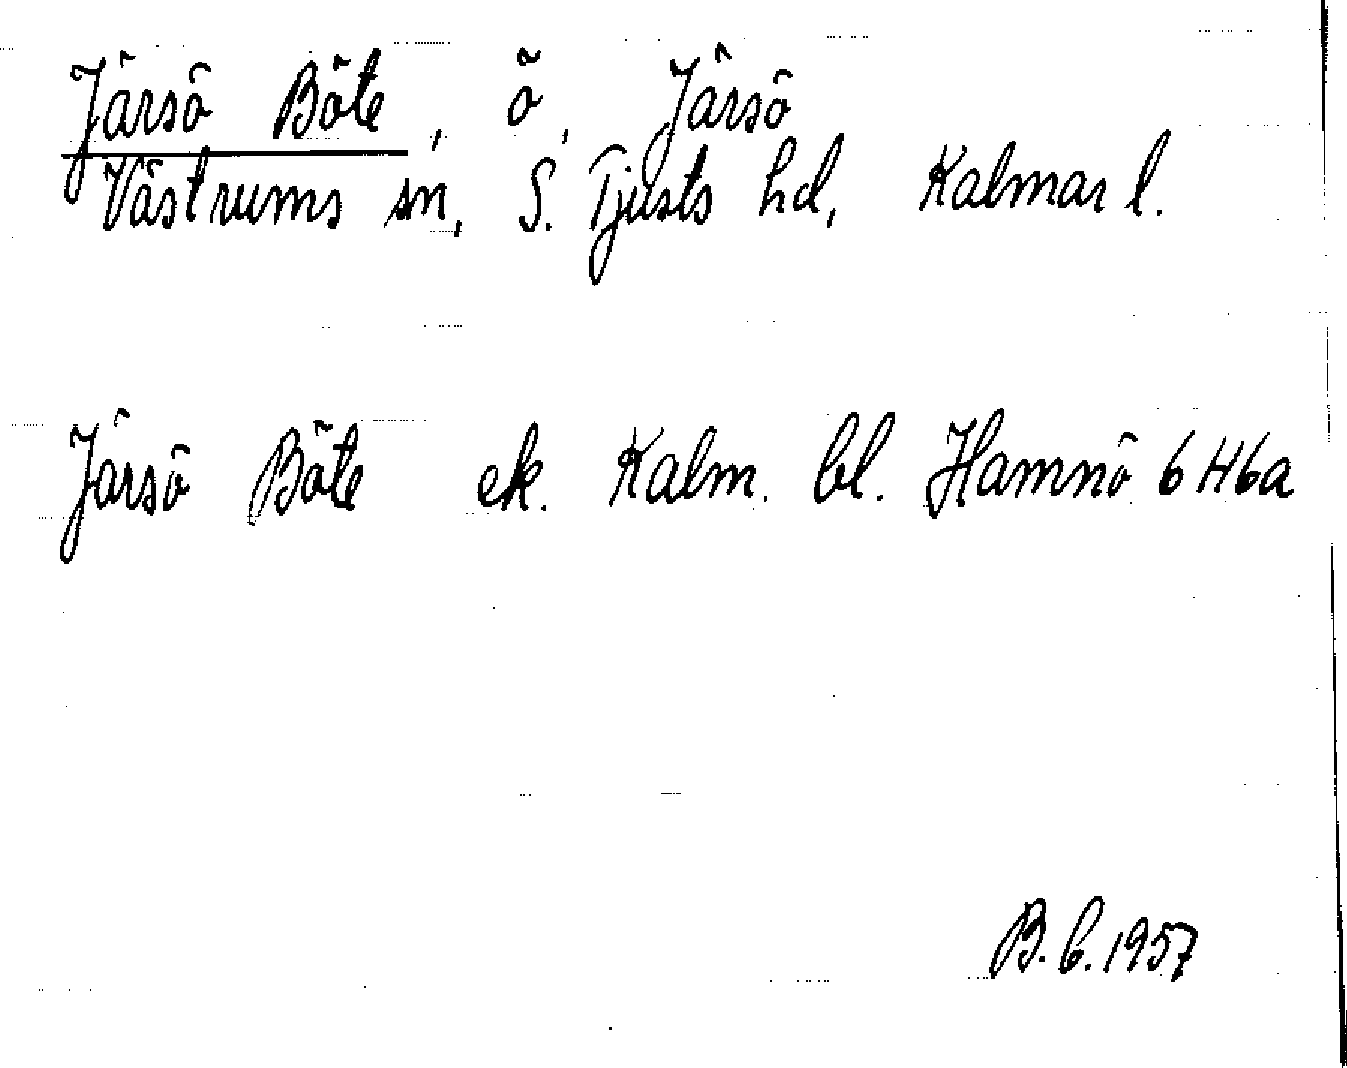 Järsö Böte, ö, Järsö
Västrums sn, S. Tjusts hd, Kalmar l.
Järsö Böte ek. Kalm. bl. Hamnö 6H6a
B.C. 1957